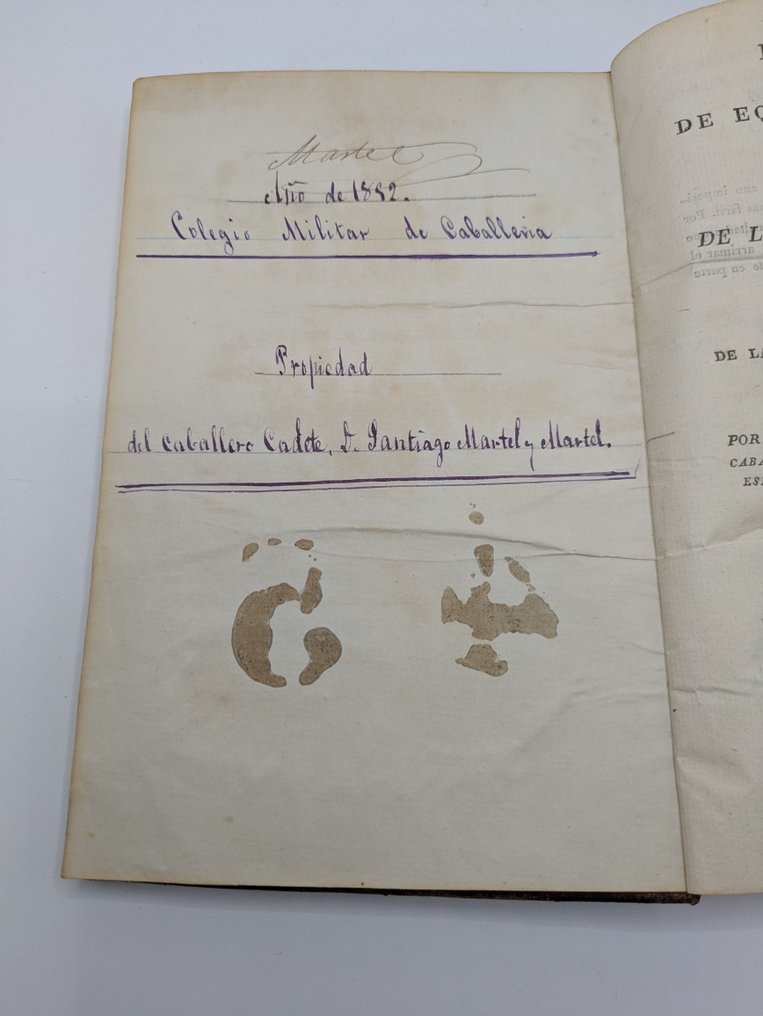 Martel
Año de
Colegio Militar de Caballeria
Propiedad
del Caballero Cadete, D. Santiago Martel y Martel.
DE EQ
DE L
DE LA
POR
CABA
ES